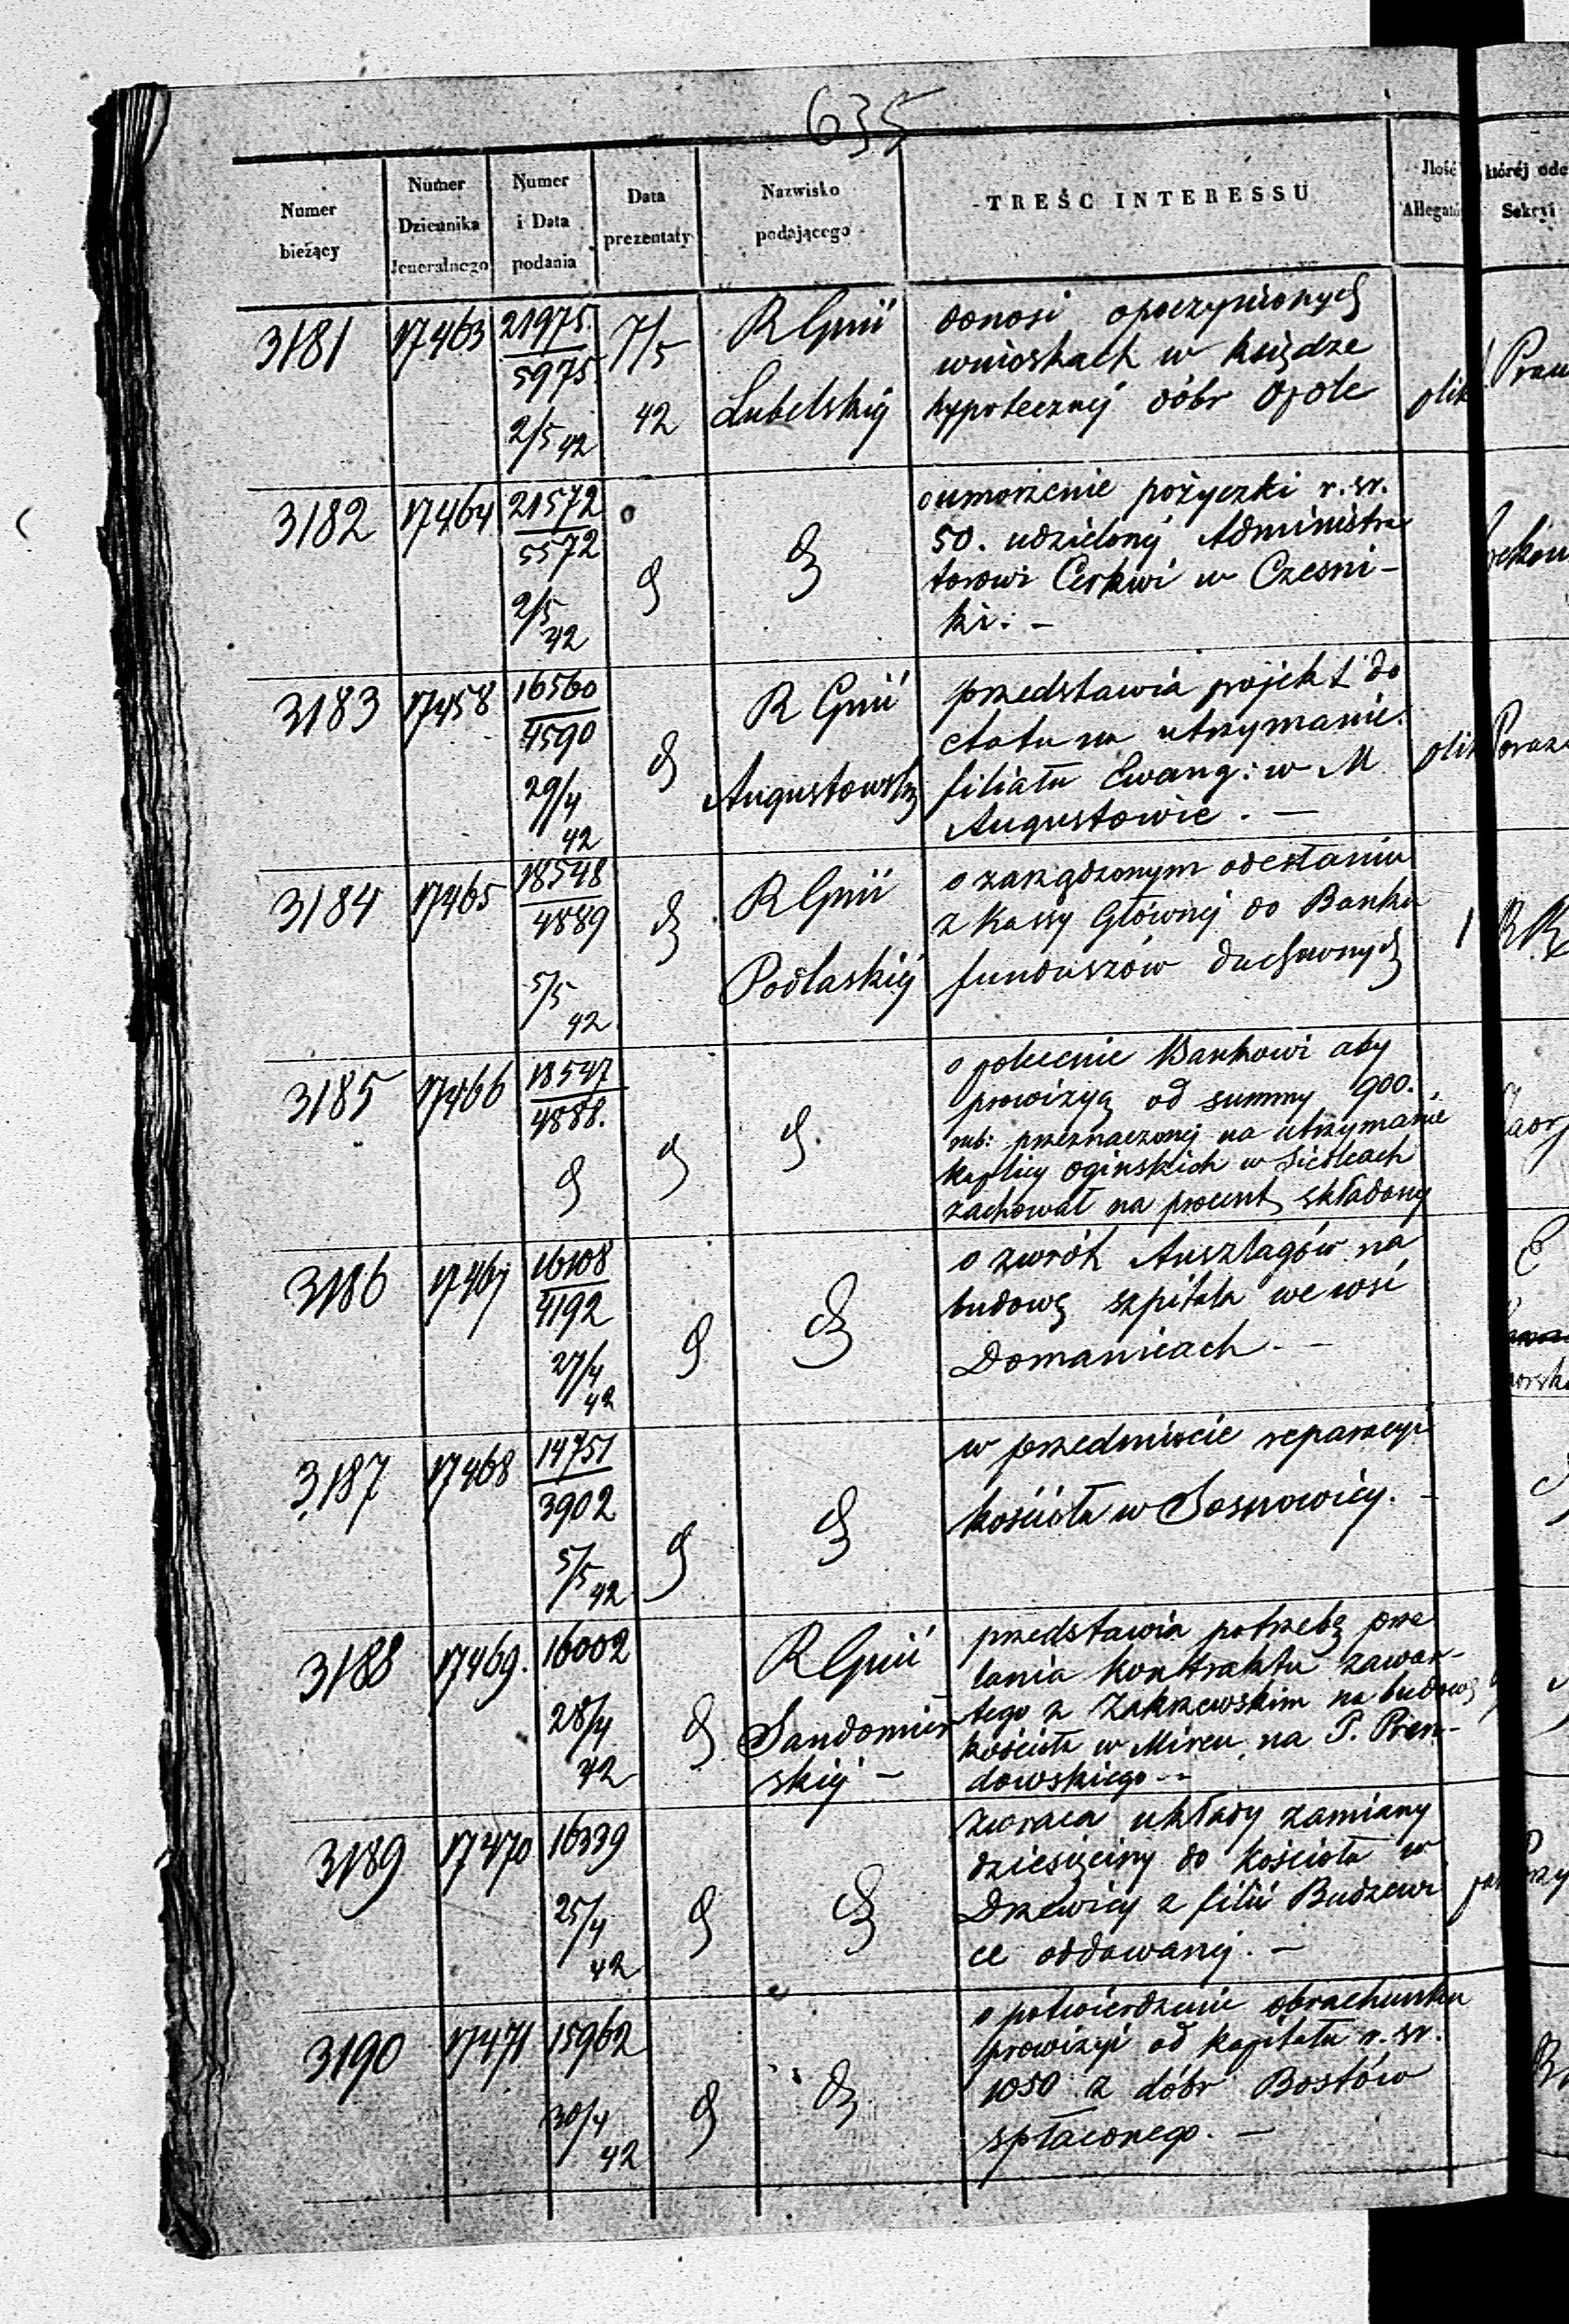 635
Numer bieżący
Numer Dziennika Jeneralnego
Numer i Data podania
Data prezentaty
Nazwisko podającego
TREŚC INTERESSU
Ilość Allegató
której ode
Sekcyi
3181 17463 21975. 7/5 R Gnii donosi o poczynionych
5975. wnioskach w księdze
2/5 42 42 Lubelskiéj hypotecznéj dóbr Opole plik
3182 17464 21572 d d o umorzenie pożyczki r. sr.
5572 50. udzielonéj Administra
2/5 42 torowi Cerkwi w Czesni-
ki. –
3183 17458 16560 d R Gnii przedstawia projekt do
4590 etatu na utrzymanie
29/4 42 Augustowskiéj filiału Ewang: w M plik
Augustowie. –
3184 17465 18548 d R Gnii o zarządzonym odesłaniu
4889 z Kassy Głównéj do Banku 1
5/5 42 Podlaskiéj funduszów duchownych
3185 17466 18547 d d o polecenie Bankowi aby
4888. prowizyą od summy 900.
d rub: przeznaczonéj na utrzymanie
kaplicy Ogińskich w Siedlcach
zachował na procent składany
3186 17467 16108 d d o zwrót Anszlagów na
4192 budowę szpitala we wsi
27/4 42 Domanicach. –
3187 17468 14751 d d w przedmiocie reparacyi
3902 kościoła w Sosnowicy. –
5/5 42
3188 17469. 16002 d R Gnii przedstawia potrzebę prze
28/4 42 Sandomier lania kontraktu zawar-
skiéj – tego z Zakrzewskim na budowę
kościoła w Mircu na P. Pren-
dowskiego –
3189 17470 16339 d d zwraca układy zamiany
25/4 42 dziesięciny do kościoła w
Drzewicy z filii Budzewi
ce oddawanéj. –
3190 17471 15962 d d o potwierdzenie obrachunku
30/4 42 prowizyi od kapitału r. sr.
1050 z dóbr Bostów
spłaconego. –